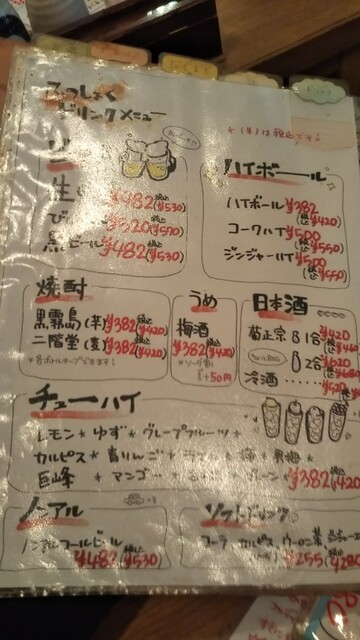 ドリンクメニュー
*(¥)は税込です。
生 ¥482(税込¥530)
び ¥520(税込¥570)
黒ビール ¥482(税込¥530)
ハイボール
ハイボール ¥382(税込¥420)
コークハイ ¥500(税込¥550)
ジンジャーハイ ¥500(税込¥550)
焼酎
黒霧島(芋) ¥382(税込¥420)
二階堂(麦) ¥382(税込¥420)
*各ボトルキープできます!
うめ
梅酒
¥382(税込¥420)
*ソーダ割り
+50円
日本酒
菊正宗 1合 ¥420
2合 ¥620
冷酒
チューハイ
レモン * ゆず * グレープフルーツ *
カルピス * 青りんご *
巨峰 * マンゴー ¥382(税込¥420
ノンアル
ノンアルコールビール
¥482(税込¥530)
ソフトドリンク
コーラ カルピス ウーロン茶
¥255(税込¥280)